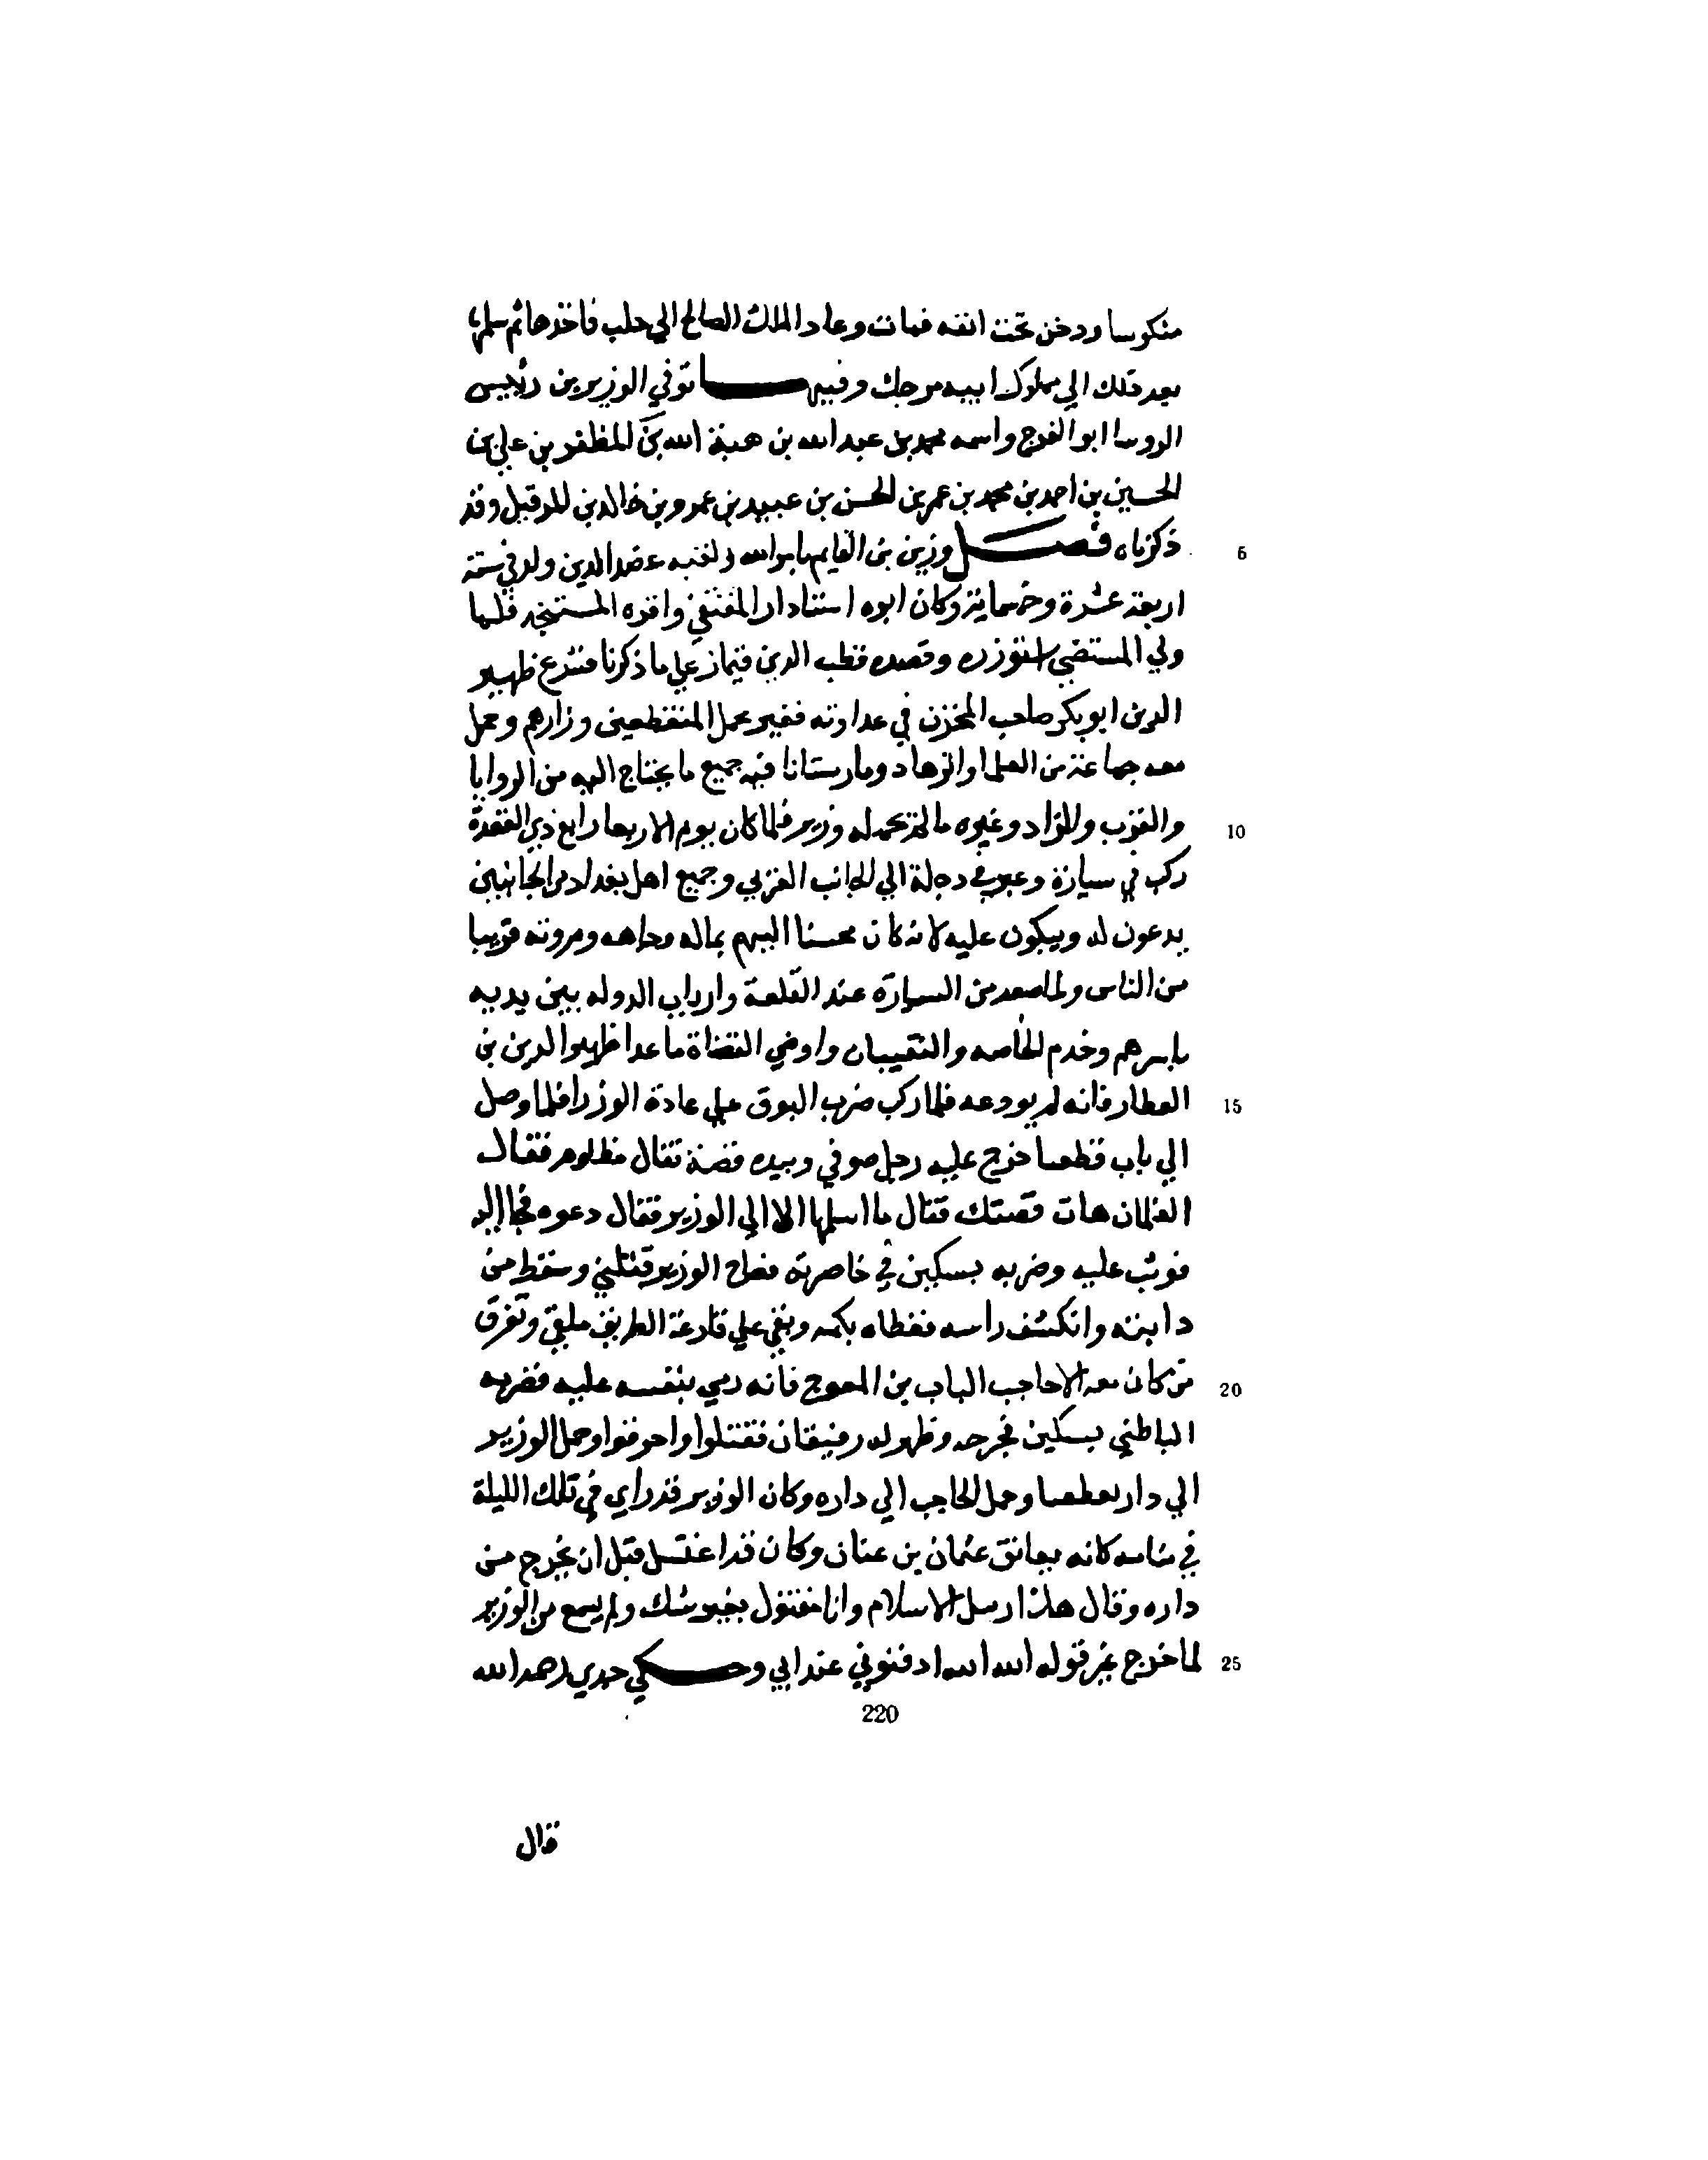 منكوسا ودخن تحت انفه فمات وعاد الملك الصالح الي حلب فاخذها ثم سلمها
بعد ذلك الي مملوك ابيه سرحك وفيها توفي الوزير بن رئيس
الروسا ابو الفرج واسمه محمد بن عبد الله بن هبة الله بن المظفر بن علي بن
الحسين بن احمد بن محمد بن عمر بن الحسن بن عبيد بن عمرو بن خالد بن الرفيل وقد
ذكرناه فصل وزير بن القايم بامر الله ولقبه عضد الدين ولد في سنة
5
اربعة عشرة وخسماية وكان ابوه استادار المقتفي واقره المستنجد فلما
ولي المستضي استوزره وقصده قطب الدين قيماز علي ما ذكرنا فشرع ظهير
الدين ابو بكر صاحب المخزن في عداوته فغير عمل المنقطعين وزارهم وحمل
معه جماعة من العلما والزهاد ومارستانا فيه جميع ما يحتاج اليه من الروايا
والقرب والزاد وغيره ما لم تحمله وزير فلما كان يوم الاربعا رابع ذي القعدة
10
ركب في سيارة وعبر في دجلة الي الجانب الغربي وجميع اهل بغداد من الجانبين
يدعون له ويبكون عليه لانه كان محسنا اليهم بماله وجاهه ومروته قريبا
من الناس ولما صعد من السيارة عند القلعة وارباب الدوله بين يديه
باسرهم وخدم الخاصه والنقيبان واوضي القضاة ما عدا ظهير الدين بن
العطار فانه لم يودعه فلما ركب ضرب البوق علي عادة الوزرا فلما وصل
15
الي باب قطعا خرج عليه رجل صوفي وبيده قصة تقال مظلوم فقال
الغلمان هات قصتك فقال ما اسلمها الا الي الوزير فقال دعوه فجا اليه
فوثب عليه وضربه بسكين في خاصرته فصاح الوزير قتلني وسقط من
دابته وانكشف راسه فغطاه بكمه وبقي علي قارعة الطريق ملقي وتفرق
من كان معه الا حاجب الباب بن المعوج فانه رمي بنفسه عليه فضربه
20
الباطني بسكين فجرحه وظهر له رفيقان فقتلوا واحرقوا وحمل الوزير
الي دار بعطعا وحمل الحاجب الي داره وكان الوزير قد راي في تلك الليلة
في منامه كانه يعانق عثمان بن عفان وكان قد اغتسل قبل ان يخرج من
داره وقال هذا رسل الاسلام وانا مقتول بغير شك ولم يسمع من الوزير
لما خرج غير قوله الله الله ادفنوني عند ابي وحكي جدي رحمه الله
25
220
قال